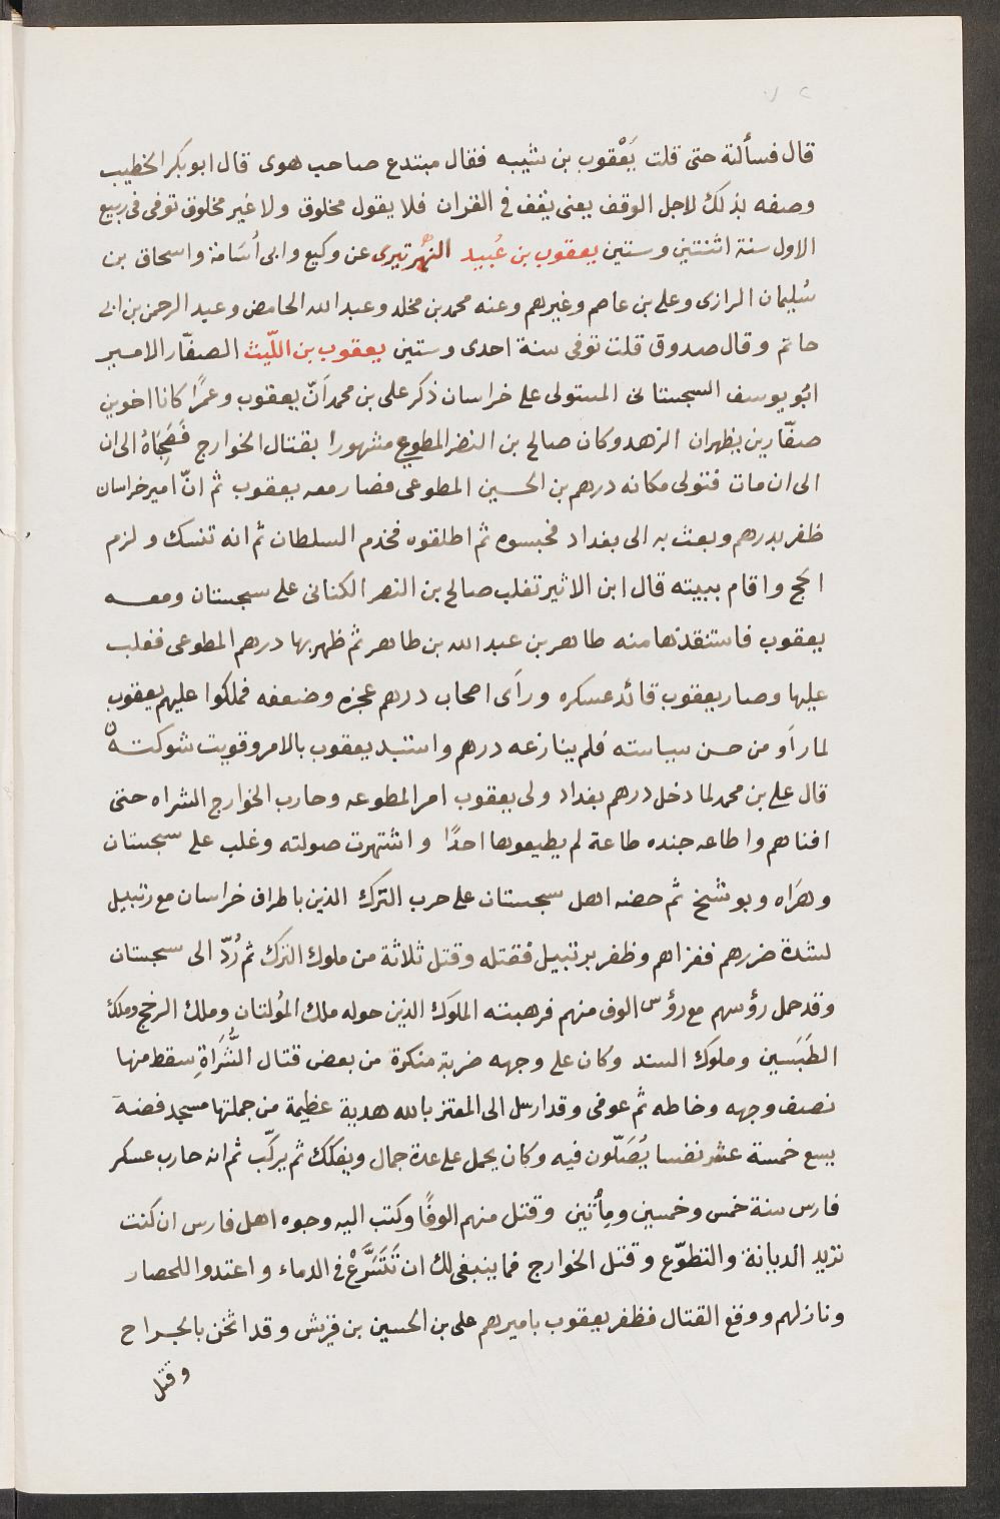 قال فسألته حتى قلت يَعْقوب بن شيبه فقال مبتدع صاحب هوى قال ابو بكر الخطيب
وصفه بذلك لاجل الوقف يعنى يقف فى القران فلا يقول مخلوق ولا غير مخلوق توفى فى ربيع
الاول سنة اثنتين وستين يعقوب بن عُبيد النهرتيرى عن وكيع وابى أسَامة واسحاق بن
سُليمان الرازى وعلى بن عاصم وغيرهم وعنه محمد بن مخلد وعبد الله الحامض وعبد الرحمن بن ابى
حاتم وقال صدوق قلت توفى سنة احدى وستين يعقوب بن اللّيث الصفّار الامير
ابُو يوسف السجستانى المستولى على خراسان ذكر على بن محمد اَنّ يعقوب وعمرًا كانا اخوين
صفّارين يظهران الزهد وكان صالح بن النضر المطوعى مشهورا بقتال الخوارج فَصَحِبَاهُ الى ان
الى ان مات فتولى مكانه درهم بن الحسين المطوعى فصار معه يعقوب ثم انّ امير خراسان
ظفر بدرهم وبعث به الى بغداد فحبسوه ثم اطلقوه فخدم السلطان ثم انه تنسك ولزم
الحج واقام ببيته قال ابن الاثير تغلب صالح بن النضر الكنانى على سجستان ومعه
يعقوب فاستنقذها منه طاهر بن عبد الله بن طاهر ثم ظهر بها درهم المطوعى فغلب
عليها وصار يعقوب قائد عسكره ورأى اصحاب درهم عجزه وضعفه فملكوا عليهم يعقوب
لما رأو من حسن سياسته فلم ينازعه درهم واستبد يعقوب بالامر وقويت شوكته
قال على بن محمد لما دخل درهم بغداد ولى يعقوب امر المطوعه وحارب الخوارج الشراه حتى
افناهم واطاعه جنده طاعة لم يطيعوها احدًا واشتهرت صولته وغلب على سجستان
وهَرَاه وبوشنج ثم حضه اهل سجستان على حرب الترك الذين باطراف خراسان مع رتبيل
لشدة ضررهم فغزاهم وظفر برتبيل فقتله وقتل ثلاثة من ملوك الترك ثم رُدّ الى سجستان
وقد حمل رؤسهم مع رؤس الوف منهم فرهبته الملوك الذين حوله ملك المُولتان وملك الرخج وملك
الطَبَسين وملوك السند وكان على وجهه ضربة منكرة من بعض قتال الشُّرَاةِ سقط منها
نصف وجهه وخاطه ثم عوفى وقد ارسل الى المعتز بالله هدية عظيمة من جملتها مسجد فضة
يسع خمسة عشر نفسا يُصَلّون فيه وكان يحمل على عدة جمال ويفكك ثم يركّب ثم انه حارب عسكر
فارس سنة خمس وخمسين ومأتين وقتل منهم الوفًا وكتب اليه وجوه اهل فارس ان كنت
تريد الديانة والتطوّع وقتل الخوارج فما ينبغى لك ان تَتَسَرَّعْ فى الدماء واعتدوا للحصار
ونازلهم ووقع القتال فظفر يعقوب باميرهم على بن الحسين بن قريش وقد اثخن بالجراح
وقتل